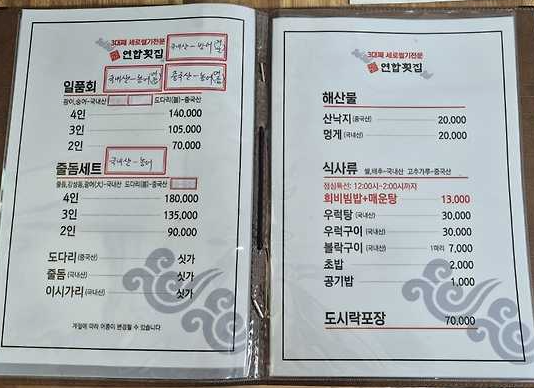 3대째 세로썰기전문
연합횟집
국내산-방어
일품회
국내산-농어
중국산-농어
광어,숭어-국내산 도다리(돌)-중국산
4인 140,000
3인 105,000
2인 70,000
줄돔세트
국내산-농어
돌돔,감성돔,광어(大)-국내산 도다리(돌)-중국산
4인 180,000
3인 135,000
2인 90,000
도다리(중국산) 싯가
줄돔(국내산) 싯가
이시가리(국내산) 싯가
계절에 따라 어종이 변경될 수 있습니다
3대째 세로썰기전문
연합횟집
해산물
산낙지(중국산) 20,000
멍게(국내산) 20,000
식사류 쌀,배추-국내산 고추가루-중국산
점심특선: 12:00시~2:00시까지
회비빔밥+매운탕 13,000
우럭탕(국내산) 30,000
우럭구이(국내산) 30,000
볼락구이(국내산) 1마리 7,000
초밥 2,000
공기밥 1,000
도시락포장 70,000